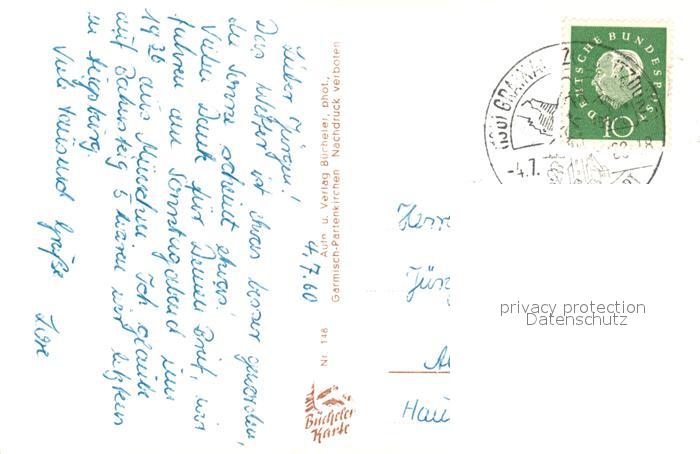 4.7.60
Lieber Jürgen!
Das Wetter ist etwas besser geworden,
die Sonne scheint etwas.
Vielen Dank für Deinen Brief, wir
fahren am Sonntagabend um
19 aus München. Ich glaube
auf Bahnsteig 5 waren wir letztens
in Augsburg.
Viele tausend Grüße
Auto u. Verlag Bücheler, phot.,
Garmisch-Partenkirchen Nachdruck verboten
Nr. 148
Bücheler
Karte
DEUTSCHE BUNDESPOST
10
(13b) GRAINAU
-4.7.
Herr
Jür
Hau
privacy protection
Datenschutz